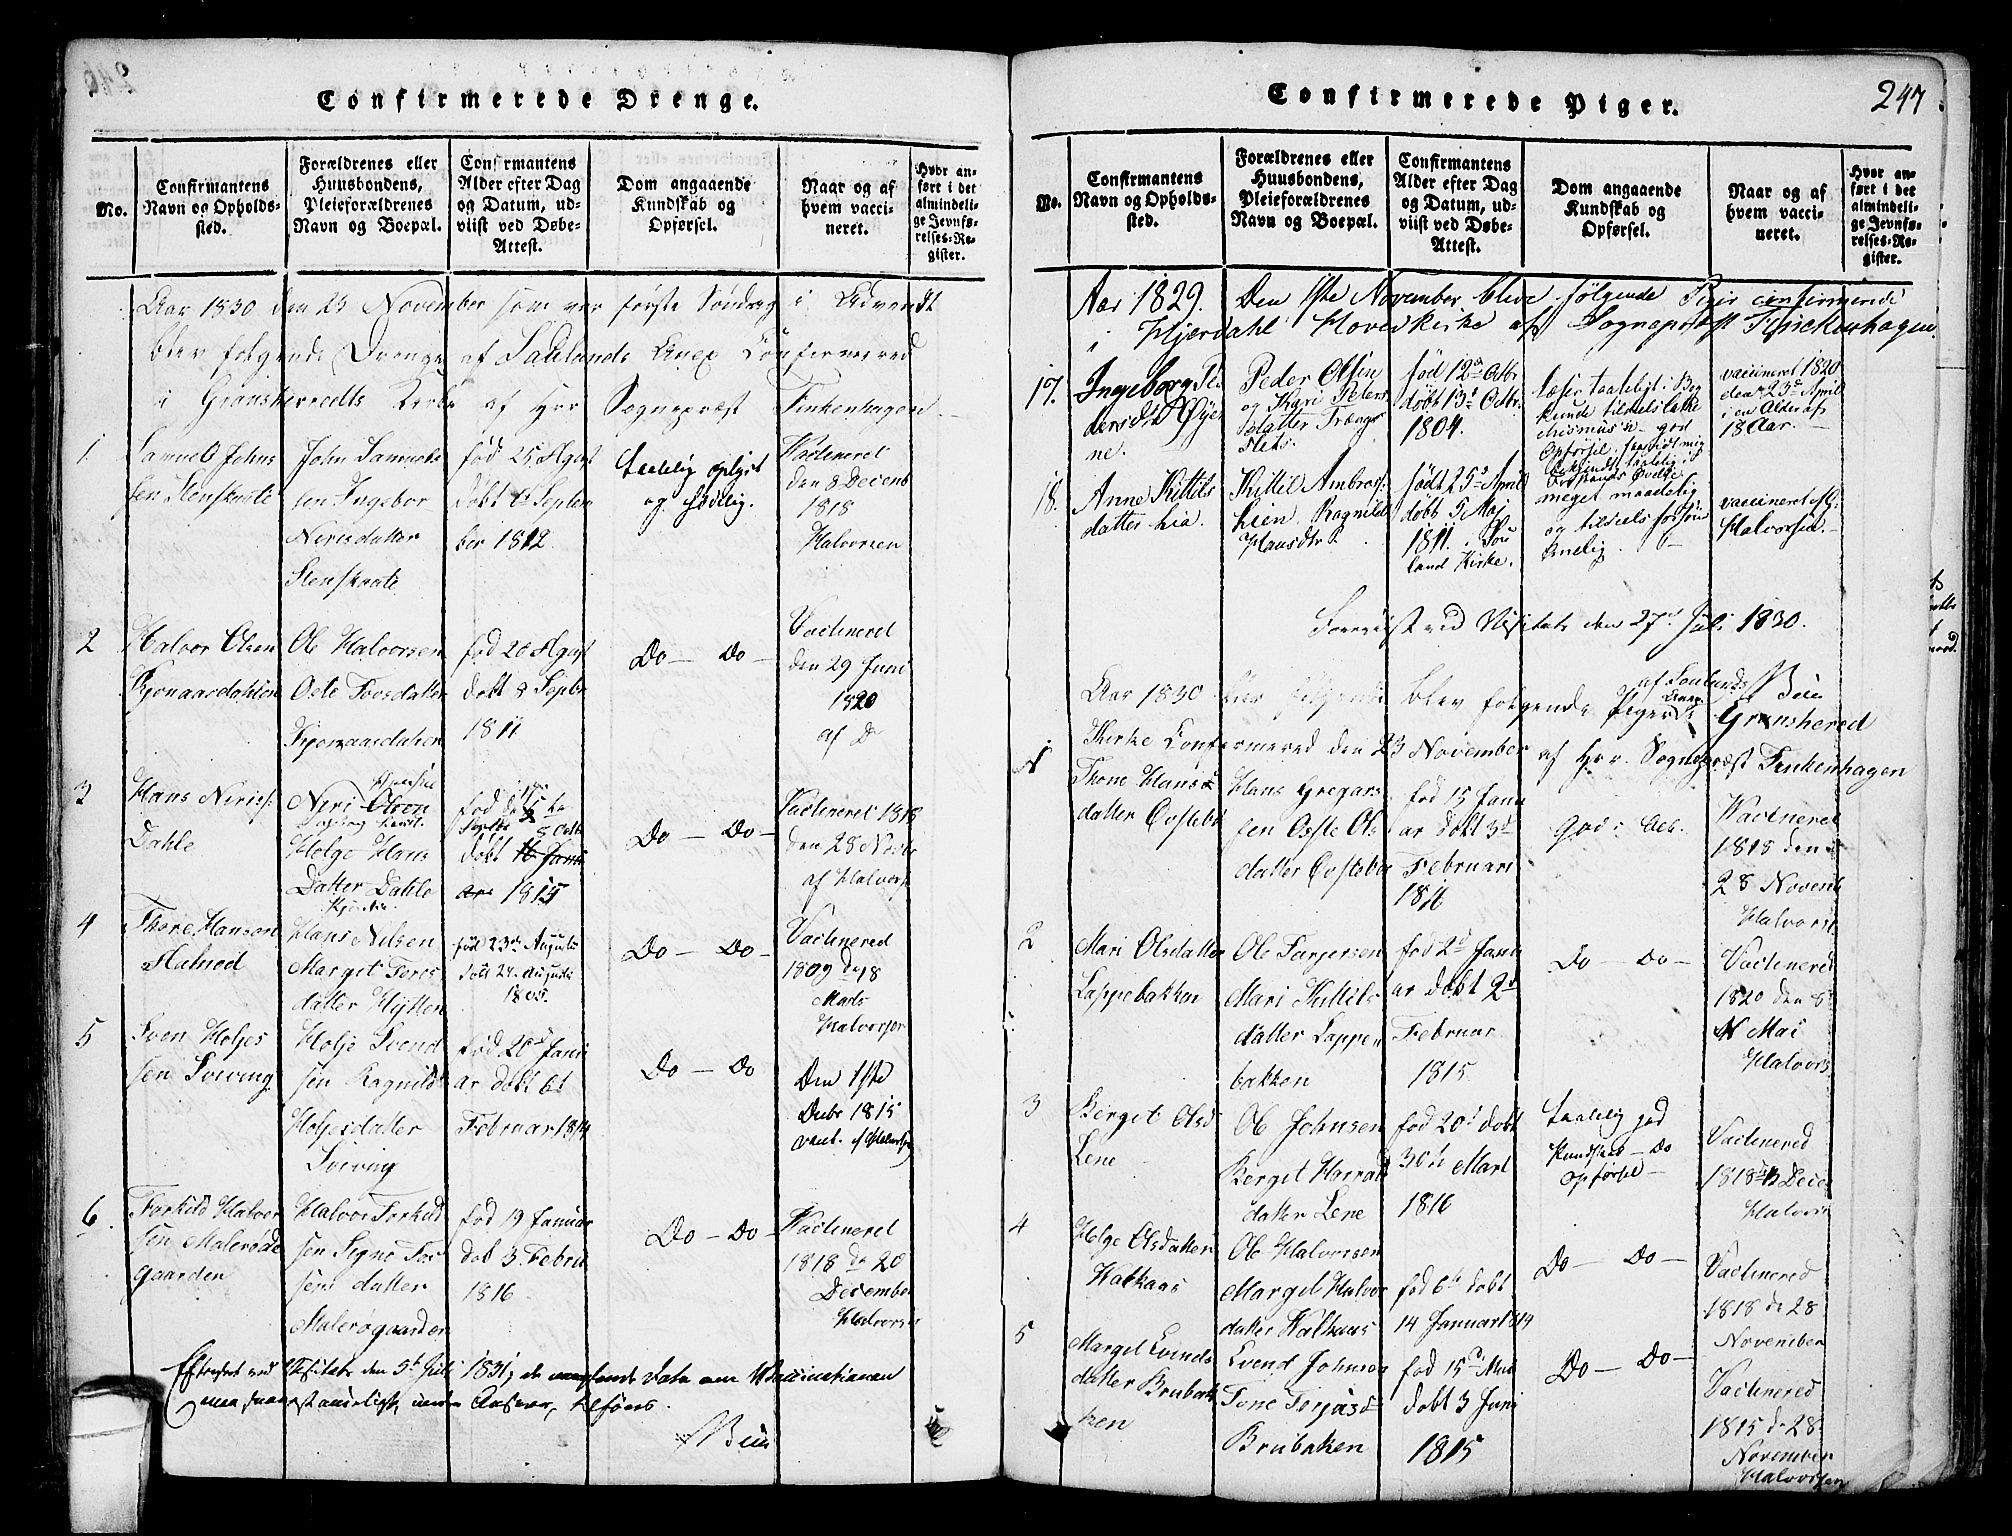 Confirmerede Drenge.
No.
Confirmantens Navn og Opholds-sted.
Forældrenes eller Huusbondens, Pleieforældrenes Navn og Boepæl.
Confirmantens Alder efter Dag og Datum, ud-viist ved Døbe-Attest.
Dom angaaende Kundskab og Opførsel.
Naar og af hvem vacci-neret.
Hvor an-ført i det almindeli-ge Jevnfø-relses-Re-gister.
Aar 1830 den 23 November som var første Søndag i Advendt
blev følgende Drenge af Saulands Anex Confirmered
i Gransherredts Kirke af Hrr Sognepræst Finkenhagen
1
Samuel Johns
sen Stenskaate
John Samuels
sen Ingebor
Nerisdatter
Stenskaate
fød 25 Agust
døbt Septem
ber 1812
taalelig oplyst
og sædelig.
Vactineret
den 8 Decemb
1818
Halvorsen
2
Halvor Olsen
Ole Halvorsen
Aste Torsdatter
fød 20 Agust
døbt 8 Septbr
1811
Do — Do —
Vactinered
den 29 Juni
1820
af D
3
Hans Neriss:
Dahle
Neri Olsen
Helge Hans
Datter Dahle
døbt 16 Janu
1815
Do — Do —
Vactineret 1818
den 28 Novbr
af Halvors
4
Thore Hanson
Hans Nilsen
Margit Tores
datter
fød 23de Augusti
døbt 24 Augusti
1805.
Do — Do —
Vactinered
1809 d 18
Marts
Halvorsen
5
Sven Holjes
sen Sving
Holje Svend
sen Ragnild
Holjesdatter
Sving
fød 20d Janu
ar døbt 6t
Februar 1814
Do — Do
Den 1ste
Decbr 1815
vacc. af Halvorsen
6
Torkild Halvor
sen Malerøde
gaarden
Halvor Torkild
sen Signe Tor
sens datter
Malerøgaarden
fød 19 Januar
døb 3 Februar
1816
Do — Do —
Vactineret
1818 d 20
December
Halvorsen
Efterseet ved Visitats den 5t Juli 1831; de manglende Data om Vaccinationen
Confirmerede Piger.
247
No.
Confirmantens Navn og Opholds-sted.
Forældrenes eller Huusbondens, Pleieforældrenes Navn og Boepæl.
Confirmantens Alder efter Dag og Datum, ud-viist ved Døbe-Attest.
Dom angaaende Kundskab og Opførsel.
Naar og af hvem vacci-neret.
Hvor an-ført i det almindeli-ge Jevnfø-relses-Re-gister.
Aar 1829. Den 1ste November bleve følgende Piger confirmerede
i Hjerdahl Hovedkirke af Sognepræst Finckenhagen.
17.
Ingeborg Pe
dersdtr Øye
ne.
Peder Olsen
og Kari Peters
datter
fød 12te Octbr
døbt 13d Octbr
1804.
læser taaleligt i Bog
vaccineret 1820
den 23d April
i en Alder af
18 Aar.
18.
Anne Kittils
datter Lia.
Kittil Ambros:
Lien Ragnild
Hansdtr
født 25d April
døbt 5 Maj
1811 i Sou
land Kirke.
meget maadelig
og tildeels forsøm
melig.
vaccineret af G:
Halvorsen.
Foreviist ved Visitats den 27d Juli 1830.
Aar 1830 blev følgende Piger af Saulands Anex i Gransherred
Kirke Confirmered den 23 November af Hrr. Sognepræst Finkenhagen
1
Thone Hans
datter Ovstebø
Hans Gregars
sen Aaste Ols
datter Ovstebø
fød 15 Janu
ar døbt 3d
Februari
1816
God
Vactinered
1818 den
28 Novemb
Halvorsen
2
Mari Olsdatter
Lappebakken
Ole Targersen
Mari Kittils
datter Lappen
bakken
fød 2d Janu
ar døbt 2d
Februar
1815
Do — Do —
Vactinered
1820 den 8
Mai
Halvors
3
Berget Olsd
Lene
Ole Johnsen
Berget Harrais
datter Lene
fød 20d døbt
30te Mart
1816
taalelig god
Kundskab — Do
opførsel —
Vactinered
1818 Dece
Halvors
4
Helge Olsdatter
Halkaas
Ole Halvorsen
Margit Halvor
datter Halkaas
fød 6te døbt
14 Januar 1814
Do — Do —
Vactinered
1818 d 28
November
5
Margit Svends
datter Brubak
ken
Svend Johnsen
Tone Torjusd
Brubaken
fød 15d Mai
døbt 3 Juni
1815
Do — Do —
Vactinered
1815 d 28
November
Halvorsen